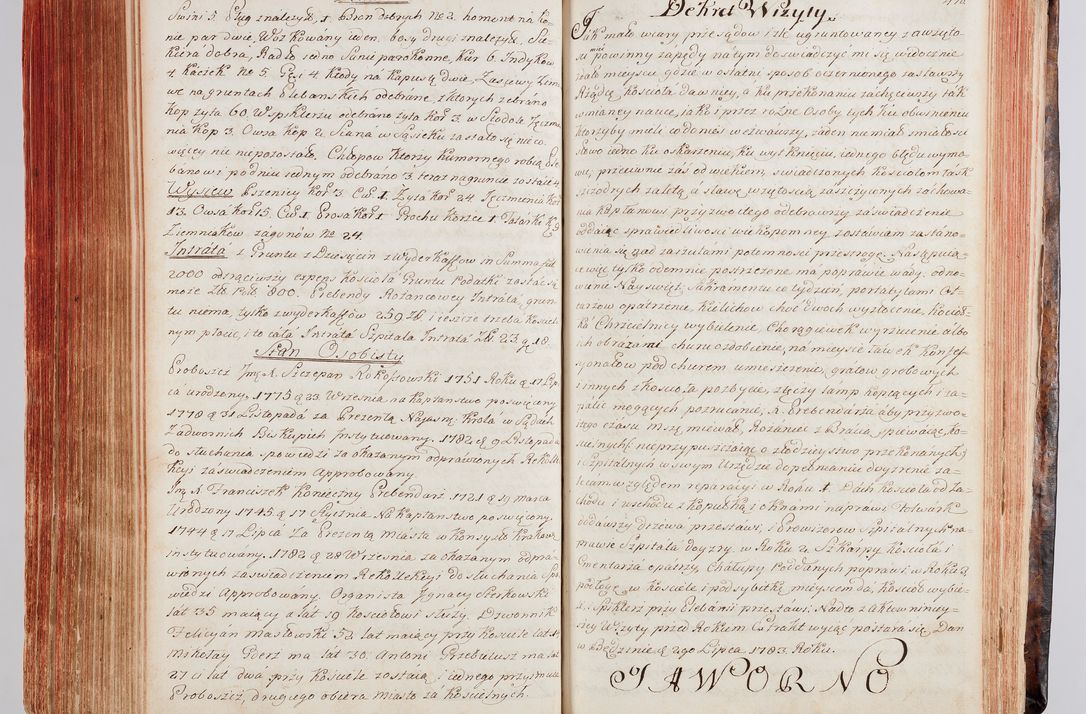 Swini 5. Pług znalezył. 1. bron dobrych No 2. homont na ko-
nie par dwie, Wóz kowany ieden, bosy drugi znalezył. Sie-
kiera dobra, Radło iedno Sanie parokonne Kur 6. Indyków
4 Kaczek No 5. Gęsi 4 Kłody na Kapustę dwie, Zasiewy Zim-
we na gruntach Plebanskich odebrane, z ktorych zebrano
Kop zyta 60. W Spiklerzu odebrano zyta Kor 3. w Stodole Jęczmie-
nia Kop 3. Owsa Kop 2. Siana w Sąsieku zastało się nieco,
więcey nic niepozostało. Chłopow Ktorzy Kumornego robią Ple-
banowi po dniu iednym odebrano 3. teraz na gruncie zostaie 4
Wysiew Pszenicy Kor 3. Cw. 1. Zyta Kor 24. Jęczmienia Kor
13. Owsa Kor 15. Cw. 1. Prosa Kor 1 Grochu Korzec 1 Tatarki K. 3
Ziemniakow zagonów No 24.
Intrata z Gruntu z Dziesięcin z Wyderkaffow in Summa
2000 odtrąciwszy expens Kościoła Gruntu Podatki zostać się
może Złł. Poł. 800. Prebendy Rozancowey Intrata, grun-
tu niema, tylko z wyderkaffow 259 Zł i ieszcze trzeba Kosciel-
nym płacić, i to cała Intrata Szpitala Intrata Złł. 23. g. 18.
Stan Osobisty
Proboszcz Jmę X. Szczepan Rokossowski 1751 Roku d. 17 Lip-
ca urodzony, 1775 d 23 Wrzesnia na Kapłanstwo poswięcony
1778 d 31 Listopada za Prezentą Nayasny Krola w Sądach
Zadwornich Biskupich Instytuowany. 1782 d 9 Listopada
do słuchania spowiedzi za okazanym odprawionych Rekolle-
kcyi zaswiadczeniem Approbowany
Jmę X Franciszek Konieczny Prebendarz 1721 d 19 marca
Urodzony 1745 d 17 Stycznia Na Kapłanstwo poswięcony
1744 d 17 Lipca Za Prezentą miasta w Konsystorzu Krakow.
instytuowany. 1782 d 28 Wrzesnia za okazanym odpra-
wionych zaswiadczeniem Rekollekcyi do słuchania Spo-
wiedzi Approbowany. Organista Jgnacy
lat 35 maiący a lat 19 Kosciołowi służy. Dzwonnik
Felicyan masłowski 52 lat maiący przy Kosciele lat
Mikołay Pderz ma lat 30. Antoni Przebulusz ma lat
27 ci lat dwa przy Kosciele zostaią i iednego przyimuie
Proboszcz, drugiego obiera miasto za Koscielnych.
Dekret Wizyty
Jak mało wiary przesądow i zle ugruntowaney zawzięto-
ści powinny zapędy na tym doswiadczyć mi się widocznie
dało mieyscu, gdzie w ostatni sposob oczernionego zastawszy
Rządcę Koscioła dawniey, a ku przekonaniu zachęciwszy tak
w miancy nauce, iako i przez rozne Osoby tych ku obwinieniu
ktorzyby mieli widomość wezwawszy, żaden nie miał smiałości
słowo iedno ku oskarzeniu, ku wytknięciu, iednego błędu wymo-
wić, przeciwnie zaś od wiekiem, swiadczonych Kosciołom łask
szczodrych zaletą, a sławę wziętością zaszczyconych zachowa-
nia kapłanowi przyzwoitego odebrawszy zaswiadczenie
oddaiąc sprawiedliwości wiekopomney zostawiam zastano-
wienia się nad zarzutami potomności przestrogę. Następuią-
ce więc tylko odemnie postrzezone ma poprawić wady. odno-
wienie Nayswięt. Sakramentu co tydzień, portatylami Oł-
tarzow opatrzenie, Kielichow choć dwoch wyzłocenie, Kocieł-
ka Chrzcielnicy wybielenie, Chorągiewek wyrzucenie albo
ich obrazami churu ozdobienie, na mieysce ławek Konfes-
syonałow pod churem umieszczenie, gratow grobowych
i innych z Koscioła pozbycie, złączy lamp kopcących i za-
palic mogących pozrucanie, X. Prebendarza aby przyzwo-
itego czasu mszą miewał, Rozaniec z Bracią spiewaiąc, Ko-
scielnych nieprzypuszczaiąc o złodzieystwo przekonanych,
i Szpitalnych w swym Urzędzie dopełnianie doyzrenie za-
lecam względem reparacyi w Roku 1. Dach Koscioła od Za-
chodu i wschodu z Kopułką i oknami naprawi Folwark
oddawszy drzewa przestawi, i Prowizorow Szpitalnych na-
prawie Szpitala doyzry, w Roku 2. Szkarpy Koscioła i
Cmentarza opatrzy, Chałupy Poddanych poprawi w Roku 3
podłogę w Kosciele i podsybitkę mieyscem da, Kościoł wybie-
li, Spiklerz przy Plebanii przestawi. Nadto z Aktow ninicy-
szey Wizyty przed Rokiem Extrakt wyciąć postara się. Dan
w Będzinie d 29 Lipca 1783. Roku.
JAWORNO